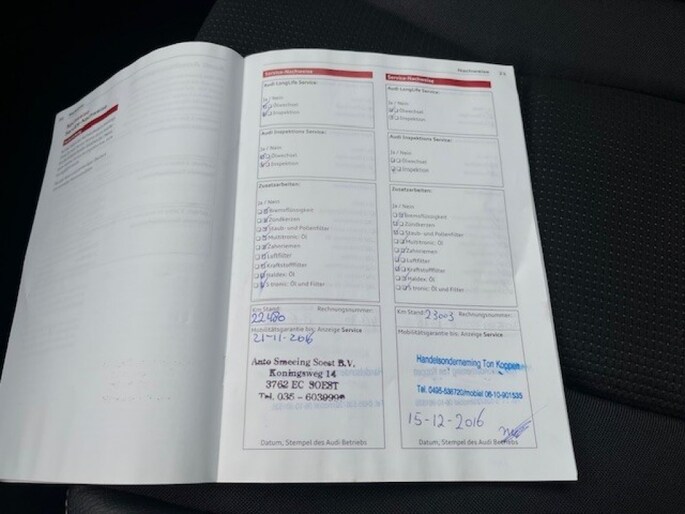 Service-Nachweise
Audi LongLife Service:
Ja / Nein
Ölwechsel
Inspektion
Audi Inspektions Service:
Ja / Nein
Ölwechsel
Inspektion
Zusatzarbeiten:
Ja / Nein
Bremsflüssigkeit
Zündkerzen
Staub- und Pollenfilter
Multitronic: Öl
Zahnriemen
Luftfilter
Kraftstofffilter
Haldex: Öl
S tronic: Öl und Filter
Km Stand: Rechnungsnummer:
22480
Mobilitätsgarantie bis: Anzeige Service
21-11-2016
Auto Smeeing Soest B.V.
Koningsweg 14
3762 EC SOEST
Tel. 035 - 6039996
Datum, Stempel des Audi Betriebs
Service-Nachweise
Audi LongLife Service:
Ja / Nein
Ölwechsel
Inspektion
Audi Inspektions Service:
Ja / Nein
Ölwechsel
Inspektion
Zusatzarbeiten:
Ja / Nein
Bremsflüssigkeit
Zündkerzen
Staub- und Pollenfilter
Multitronic: Öl
Zahnriemen
Luftfilter
Kraftstofffilter
Haldex: Öl
S tronic: Öl und Filter
Km Stand: 23003 Rechnungsnummer:
Mobilitätsgarantie bis: Anzeige Service
Handelsonderneming Ton Koppen
Tel. 0495-536720/mobiel 06-10-901535
15-12-2016
Datum, Stempel des Audi Betriebs